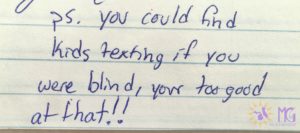 ps. you could find
kids texting if you
were blind, your too good
at that!!
MG